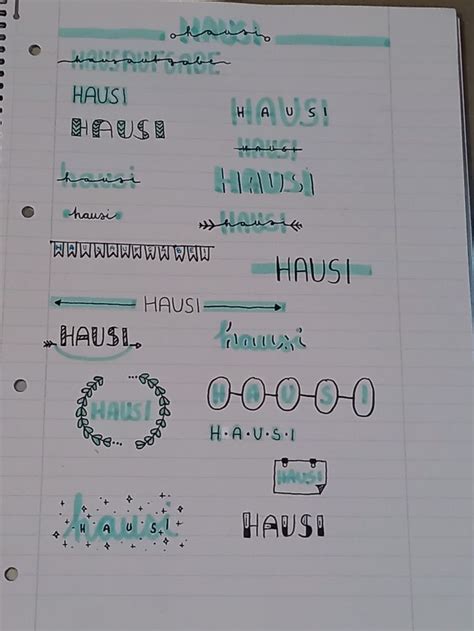 HAUSI
hausi
HAUSAUFGABE
hausaufgabe
HAUSI
HAUSI
H A U S I
HAUSI
HAUSI
hausi
hausi
hausi
HAUSI
hausi
HAUSI
hausi
HAUSI
HAUSI
HAUSI
hausi
HAUSI
H-A-U-S-I
H·A·U·S·I
HAUSI
hausi
H A U S I
HAUSI